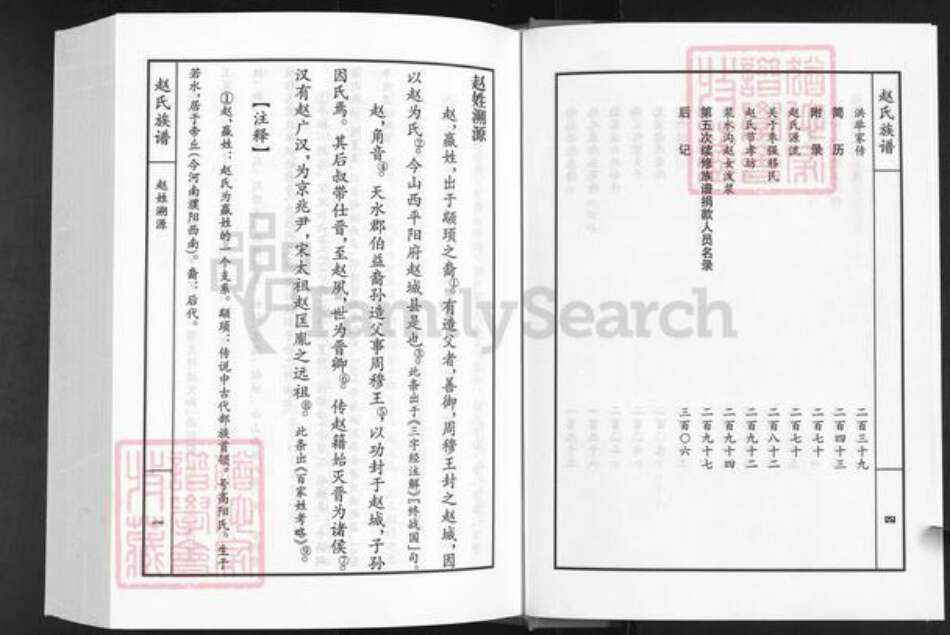 赵氏族谱
四
洪举家传 二百三十九
简历 二百四十三
附录 二百七十
赵氏源流 二百七十一
关于枣强移民 二百八十二
赵氏节孝坊 二百九十二
浆水沟赵女泼浆 二百九十四
第五次续修族谱捐款人员名录 二百九十七
后记 三百〇六
赵姓溯源
赵，嬴姓，出于颛顼之裔①。有造父者，善御，周穆王封之赵城，因
以赵为氏②。今山西平阳府赵城县是也③。此条出于《三字经注解》〖终战国」句。
赵，角音④。天水郡伯益裔孙造父事周穆王⑤，以功封于赵城，子孙
因氏焉。其后叔带仕晋，至赵夙，世为晋卿⑥。传赵籍始灭晋为诸侯⑦。
汉有赵广汉，为京兆尹，宋太祖赵匡胤之远祖⑧。此条出《百家姓考略》⑨。
【注释】
①赵，嬴姓：赵氏为嬴姓的一个支系。颛顼：传说中古代部族首领。号高阳氏。生于
若水，居于帝丘（今河南濮阳西南）。裔：后代。
赵氏族谱
赵姓溯源
一
FamilySearch